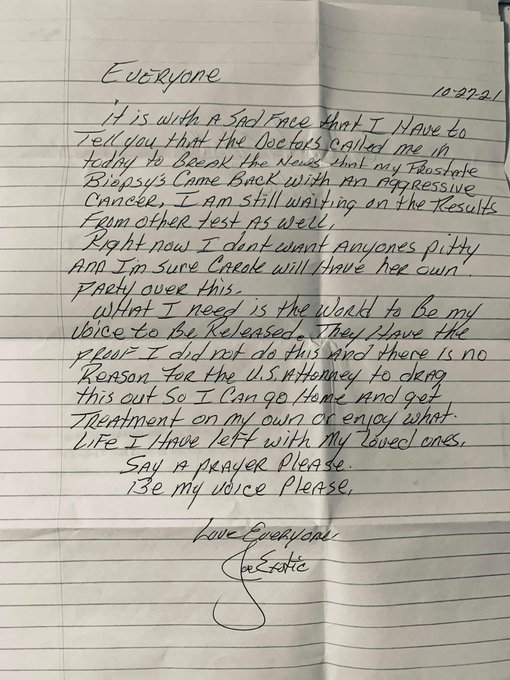 Everyone
10-27-21
it is with a Sad Face that I Have to
Tell you that the Doctors called me in
today to Break the News that my Prostate
Biopsy's Came Back with an aggressive
Cancer, I am still waiting on the Results
From other test as well.
Right now I dont want anyones pitty
and I'm sure Carole will Have her own
Party over this.
What I need is the World to Be my
voice to Be Released. They Have the
proof I did not do this and there is no
Reason for the U.S. Attorney to drag
this out So I can go Home and get
Treatment on my own or enjoy what
Life I Have left with my loved ones.
Say a prayer Please.
Be my voice Please,
Love Everyone
Joe Exotic